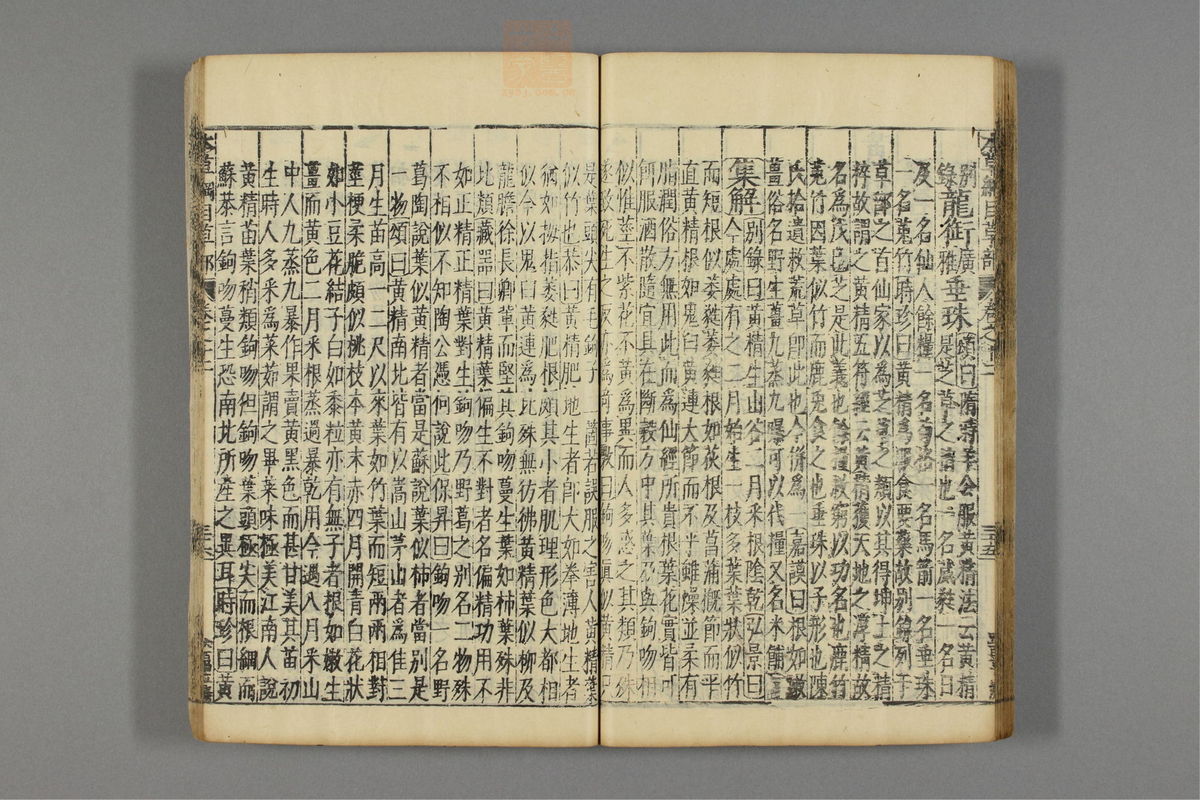 本草綱目草部 卷之十二 三十五
別龍銜廣垂珠頌曰隋時羊公服黃精法云黃精
錄雅是芝草之精也一名葳蕤一名白
及一名仙人餘糧一名苟格一名馬箭一名垂珠
一名菟竹時珍曰黃精為服食要藥故別錄列于
草部之首仙家以為芝草之類以其得坤土之精
粹故謂之黃精五符經云黃精獲天地之淳精故
名為戊己芝是此義也餘糧救窮以功名也鹿竹
菟竹因葉似竹而鹿兔食之也垂珠以子形也陳
氏拾遺救荒草即此也今併為一嘉謨曰根如嫩
薑俗名野生薑九蒸九曝可以代糧又名米餔
集解別錄曰黃精生山谷二月采根陰乾弘景曰
今處處有之二月始生一枝多葉葉狀似竹
而短根似萎蕤萎蕤根如荻根及菖蒲概節而平
直黃精根如鬼臼黃連大節而不平雖燥並柔有
脂潤俗方無用此而為仙經所貴根葉花實皆可
餌服酒散隨宜具在斷穀方中其葉乃與鉤吻相
似惟莖不紫花不黃為異而人多惑之其類乃殊
遂致死生之反亦為奇事斅曰鉤吻真似黃精只
是葉頭尖有毛鉤子二箇若誤服之害人黃精葉
似竹也恭曰黃精肥地生者即大如拳薄地生者
猶如拇指萎蕤肥根頗其小者肌理形色大都相
似今以鬼臼黃連為比殊無彷彿黃精葉似柳及
龍膽徐長卿輩而堅其鉤吻蔓生葉如柿葉殊非
比類藏器曰黃精葉偏生不對者名偏精功用不
如正精正精葉對生鉤吻乃野葛之別名二物殊
不相似不知陶公憑何說此保昇曰鉤吻一名野
葛陶說葉似黃精者當是蘇說葉似柿者當別是
一物頌曰黃精南北皆有以嵩山茅山者為佳三
月生苗高一二尺以來葉如竹葉而短兩兩相對
莖梗柔脆頗似桃枝本黃末赤四月開青白花狀
如小豆花結子白如黍粒亦有無子者根如嫩生
薑而黃色二月采根蒸過暴乾用今遇八月采山
中人九蒸九暴作果賣黃黑色而甚甘美其苗初
生時人多采為菜茹謂之畢菜味極美江南人說
黃精苗葉稍類鉤吻但鉤吻葉頭極尖而根細而
蘇恭言鉤吻蔓生恐南北所產之異耳時珍曰黃
本草綱目草部 卷之十二